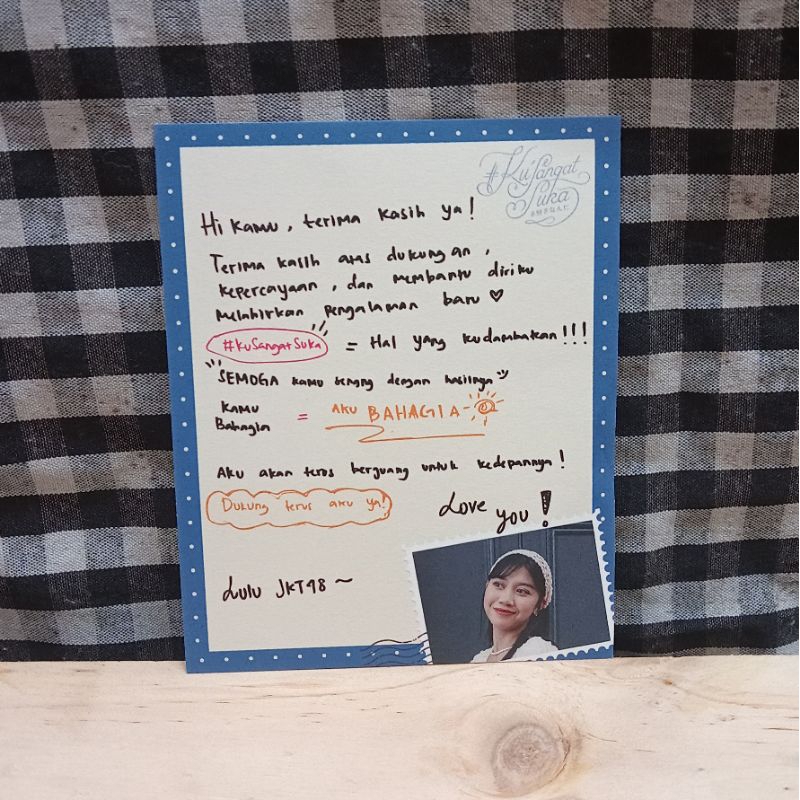 #KuSangat
Suka
#好きなんだ
Hi kamu, terima kasih ya!
Terima kasih atas dukungan,
kepercayaan, dan membantu diriku
melahirkan pengalaman baru ♡
#KuSangatSuka = Hal yang kudambakan!!!
SEMOGA kamu senang dengan hasilnya
Kamu
Bahagia = AKU BAHAGIA
Aku akan terus berjuang untuk kedepannya!
Dukung terus aku ya!
Love
you!
Lulu JKT48 ~